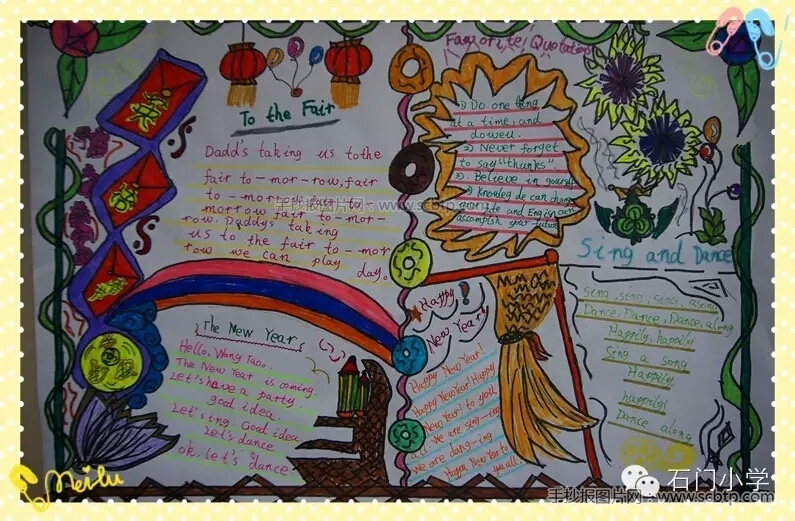 To the Fair
Dadd's taking us tothe
fair to-mor-row, fair
to-morrow fair to-
morrow fair to-mor-
row. Daddy's taking
us to the fair to-mor
row we can play day.
Favorite Quotation
1) Do one thing
at a time, and
dowell.
2) Never forget
to say "thunks"
3). Believe in
4) Knowleg de can change
your life and English can
accomplish your future
Sing and Dance
Sing, sing, sing, along
Dance, Dance, Dance, along
Happily, happily
Sing a song
Happily
happily
Dance along
The New Year
Hello, Wang Tao.
The New Year is coming.
Let's have a party.
good idea.
Let's ing. Good idea.
Let's dance
ok. Let's dance
Happy
New Year
Happy New Year!
Happy New Year! Happy
New Year! to you
all we are sing-ing
we are dang-ing
Happy New Year to
you all!
手抄报图片网-www.scbtp.com
Meilu
石门小学
手抄报图片网-www.scbtp.com